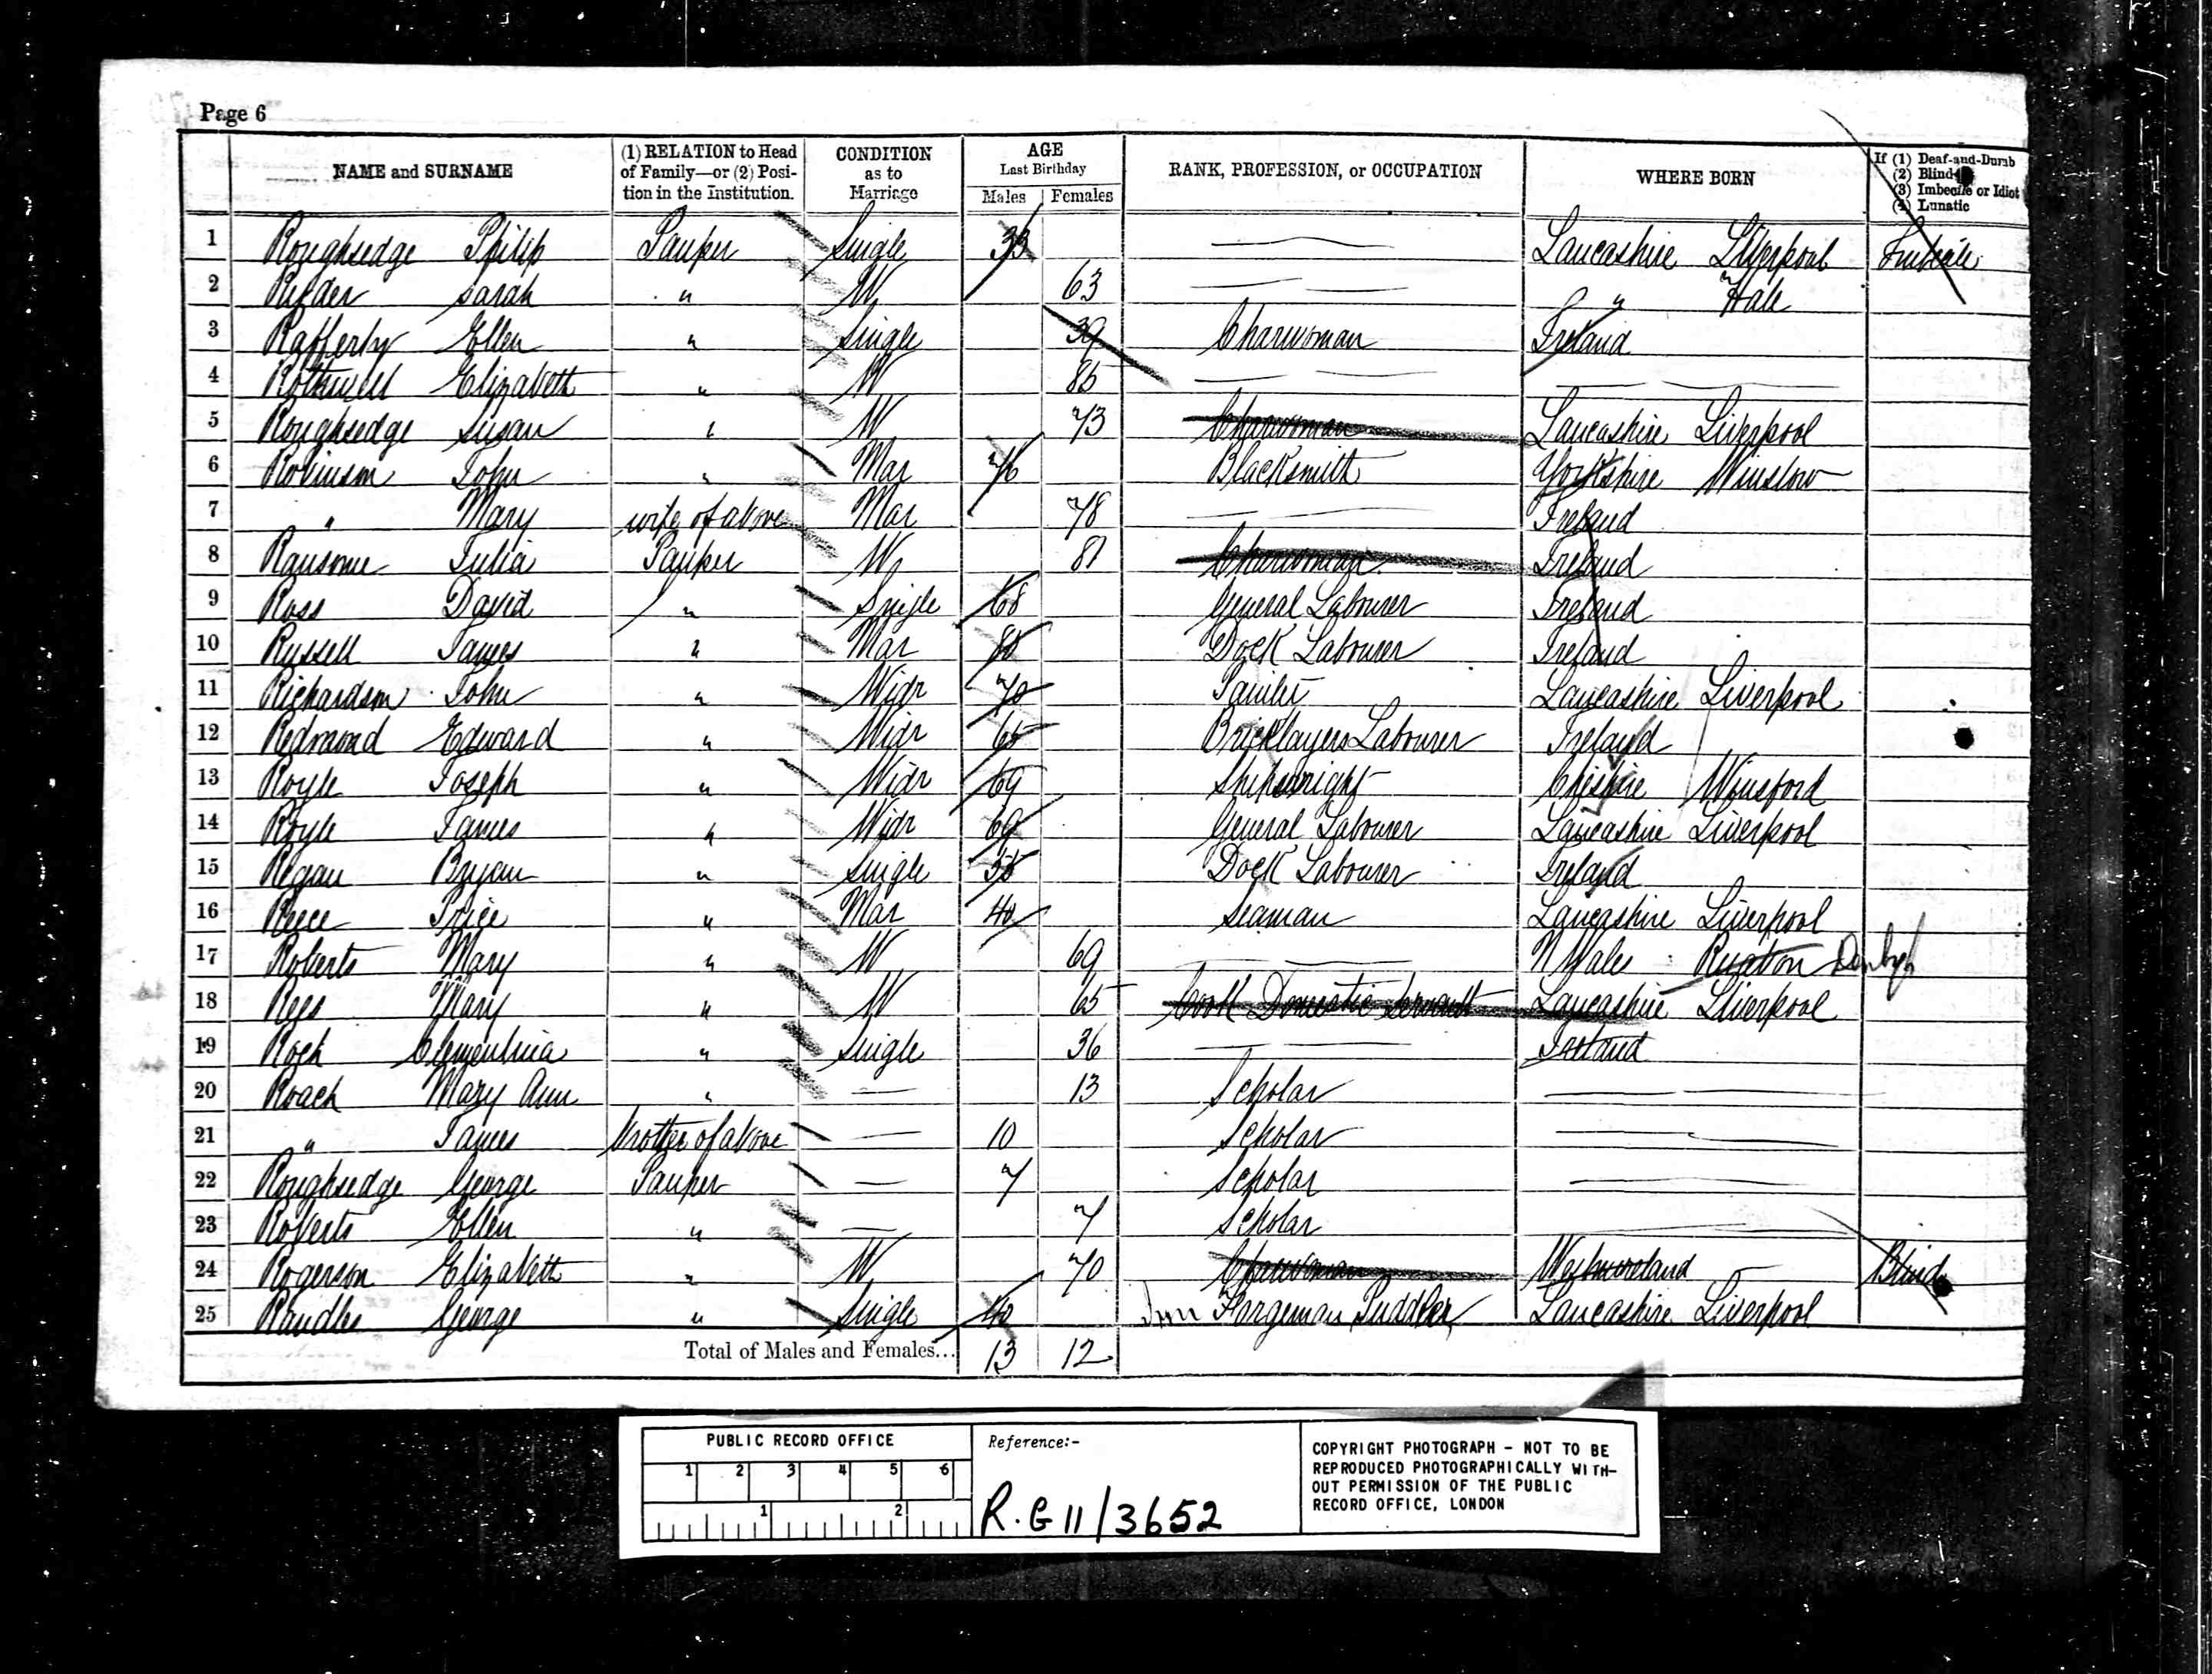 Page 6
NAME and SURNAME (1) RELATION to Head of Family—or (2) Position in the Institution. CONDITION as to Marriage AGE Last Birthday Males Females RANK, PROFESSION, or OCCUPATION WHERE BORN If (1) Deaf-and-Dumb (2) Blind (3) Imbecile or Idiot (4) Lunatic
1 Roughsedge Philip Pauper Single 33 Lancashire Liverpool Imbecile
2 Sarah " W 63 " Hale
3 Rafferty Ellen " Single 39 Charwoman Ireland
4 Rothwell Elizabeth " W 85
5 Roughsedge Susan " W 73 Charwoman Lancashire Liverpool
6 Robinson John " Mar 76 Blacksmith Yorkshire Winslow
7 " Mary wife of above Mar 78 Ireland
8 Ransome Julia Pauper W 81 Charwoman Ireland
9 Ross David " Single 68 General Labourer Ireland
10 Russell James " Mar 80 Dock Labourer Ireland
11 Richardson John " Widr 70 Painter Lancashire Liverpool
12 Redmond Edward " Widr 65 Bricklayers Labourer Ireland
13 Royle Joseph " Widr 69 Shipwright Cheshire Winsford
14 Royle James " Widr 69 General Labourer Lancashire Liverpool
15 Regan Bryan " Single 55 Dock Labourer Ireland
16 Reece Price " Mar 40 Seaman Lancashire Liverpool
17 Roberts Mary " W 69 N Wales Ruabon Denbigh
18 Rees Mary " W 65 Cook Domestic Servant Lancashire Liverpool
19 Roch Clementina " Single 36 Ireland
20 Roach Mary Ann " — 13 Scholar
21 " James brother of above — 10 Scholar
22 Roughsedge George Pauper — 7 Scholar
23 Roberts Ellen " — 7 Scholar
24 Rogerson Elizabeth " W 70 Charwoman Westmoreland Blind
25 Randles George " Single 40 Iron Forgeman Puddler Lancashire Liverpool
Total of Males and Females... 13 12
PUBLIC RECORD OFFICE
1 2 3 4 5 6
1 2
Reference:-
R.G 11/3652
COPYRIGHT PHOTOGRAPH - NOT TO BE
REPRODUCED PHOTOGRAPHICALLY WITH-
OUT PERMISSION OF THE PUBLIC
RECORD OFFICE, LONDON